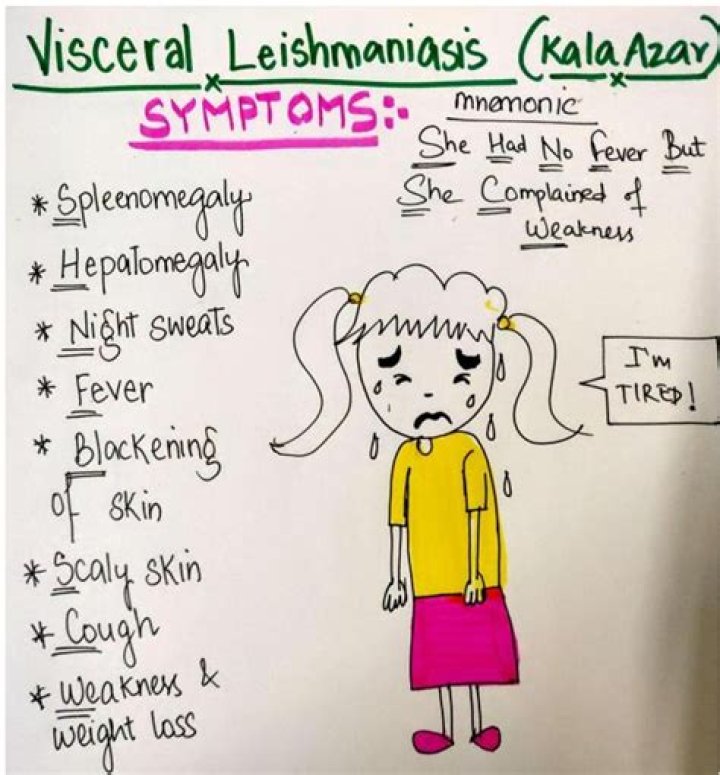 Visceral Leishmaniasis (Kala Azar)
SYMPTOMS:-
mnemonic
She Had No Fever But
She Complained of
Weakness
* Spleenomegaly
* Hepatomegaly
* Night sweats
* Fever
* Blackening
of skin
* Scaly skin
* Cough
* Weakness &
weight loss
I'm
TIRED!